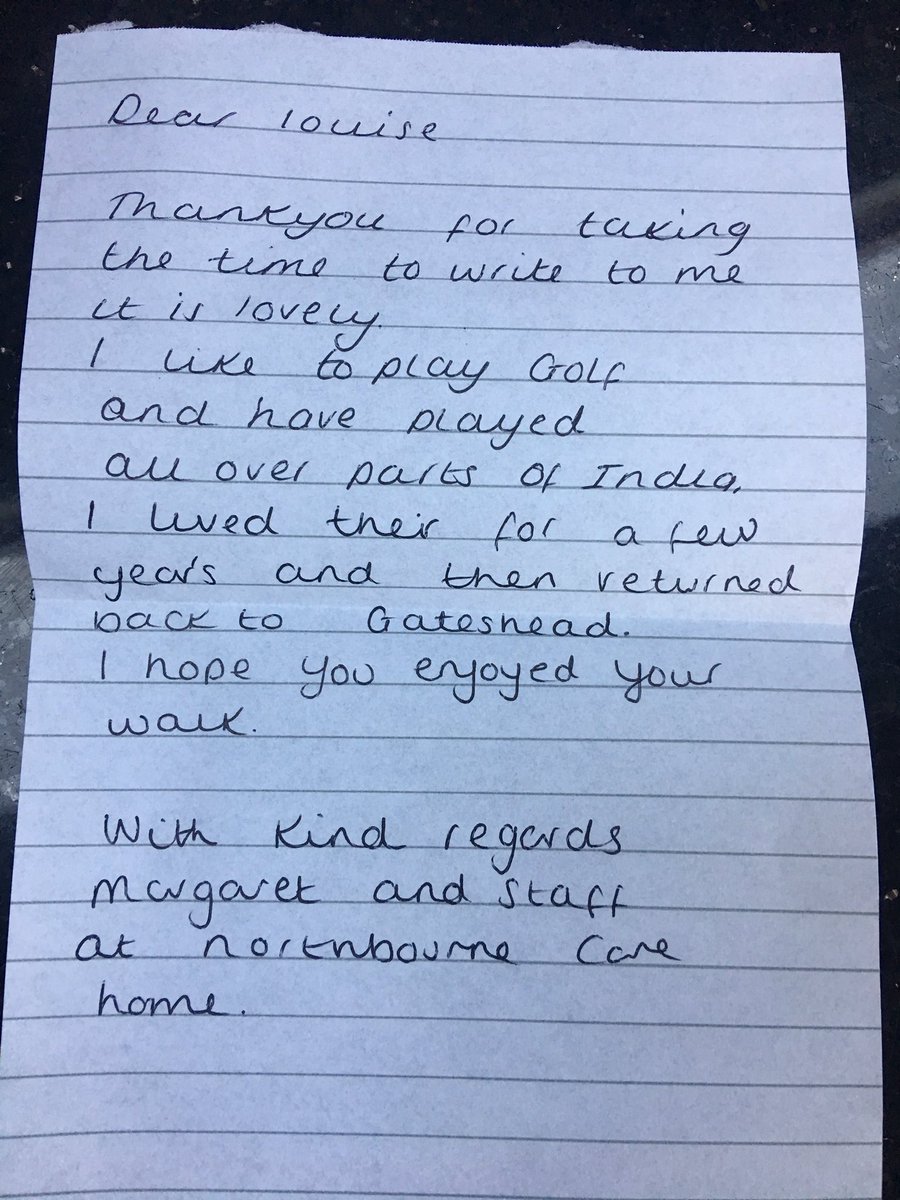 Dear louise
Thankyou for taking
the time to write to me
it is lovely.
I like to play Golf
and have played
all over parts of India.
I lived their for a few
years and then returned
back to Gateshead.
I hope you enjoyed your
walk.
With kind regards
Margaret and staff
at northbourne Care
home.